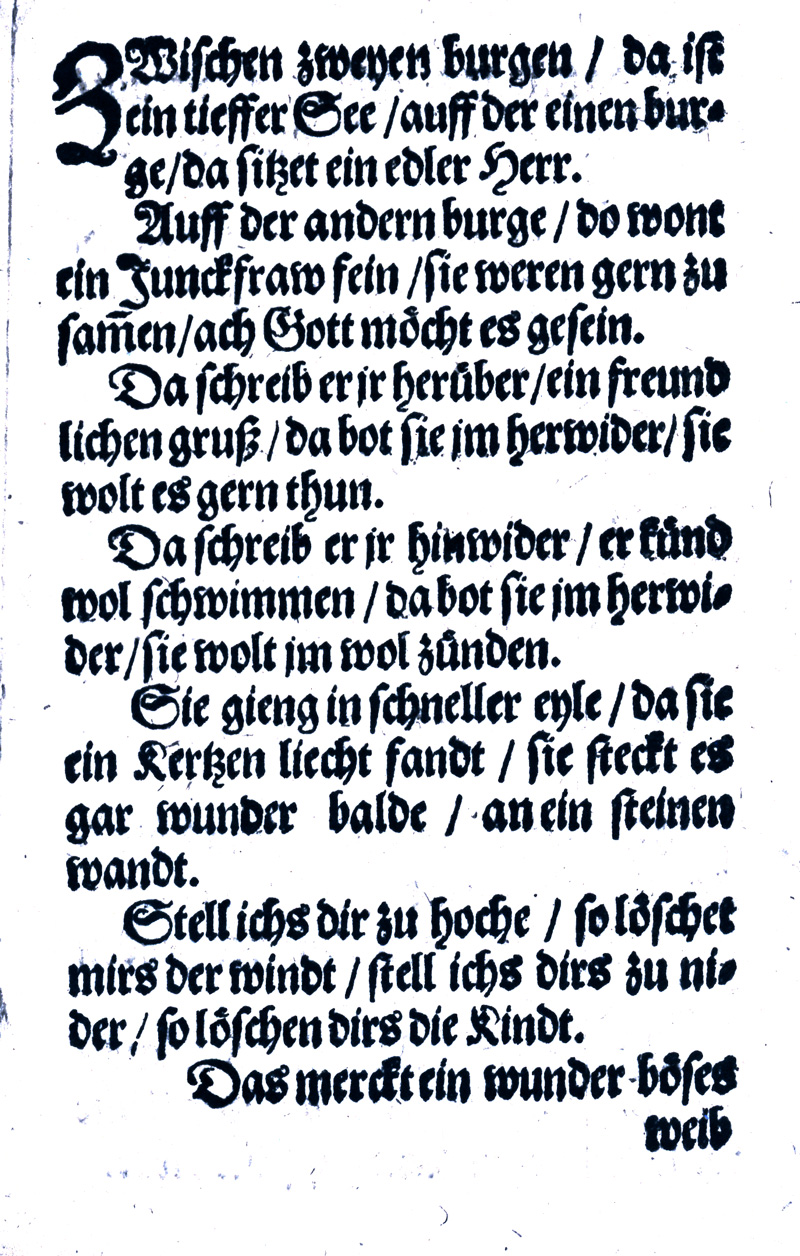 ZWischen zweyen burgen / da ist
ein tieffer See / auff der einen bur⸗
ge / da sitzet ein edler Herr.
Auff der andern burge / do wont
ein Junckfraw fein / sie weren gern zu
sam̃en / ach Gott möcht es gesein.
Da schreib er jr herüber / ein freund
lichen gruß / da bot sie jm herwider / sie
wolt es gern thun.
Da schreib er jr hinwider / er künd
wol schwimmen / da bot sie jm herwi⸗
der / sie wolt jm wol zünden.
Sie gieng in schneller eyle / da sie
ein Kertzen liecht fandt / sie steckt es
gar wunder balde / an ein steinen
wandt.
Stell ichs dir zu hoche / so löschet
mirs der windt / stell ichs dirs zu ni⸗
der / so löschen dirs die Kindt.
Das merckt ein wunder böses
weib